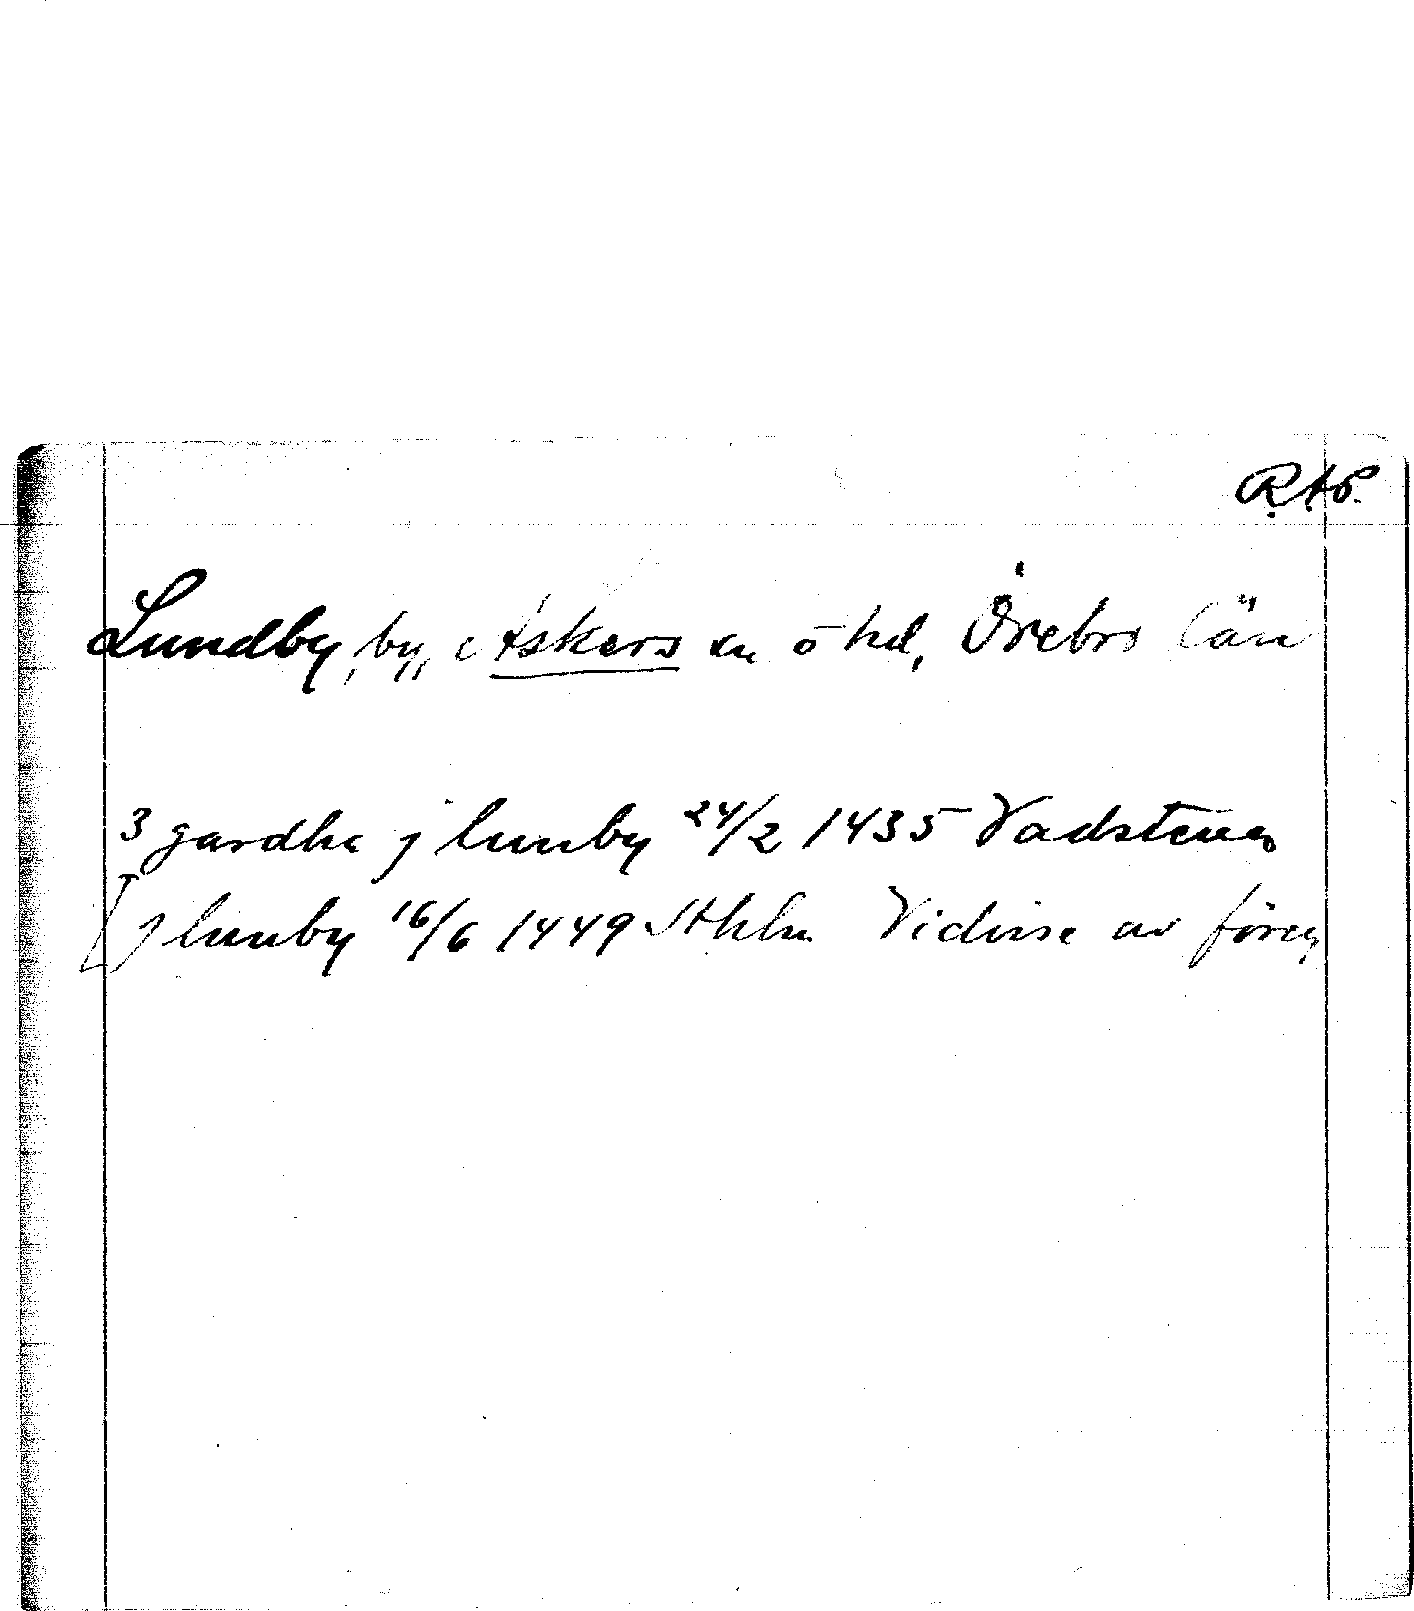 R.A.P.
Lundby, by, i Askers sn o hd, Örebro län
3 gardha j lunby 24/2 1435 Vadstena
[j lunby 16/6 1449 Sthlm Vidisse av föreg